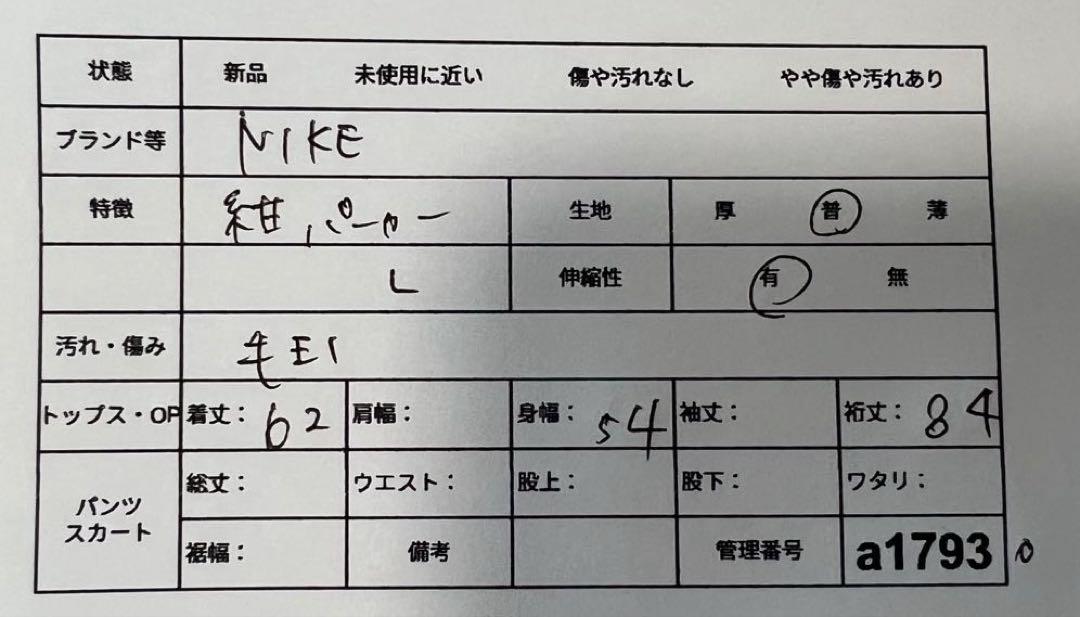 状態 新品 未使用に近い 傷や汚れなし やや傷や汚れあり
ブランド等 NIKE
特徴 紺、パーカー 生地 厚 普 薄
L 伸縮性 有 無
汚れ・傷み 毛玉
トップス・OP 着丈: 62 肩幅: 身幅: 54 袖丈: 裄丈: 84
パンツ スカート 総丈: ウエスト: 股上: 股下: ワタリ:
裾幅: 備考 管理番号 a1793